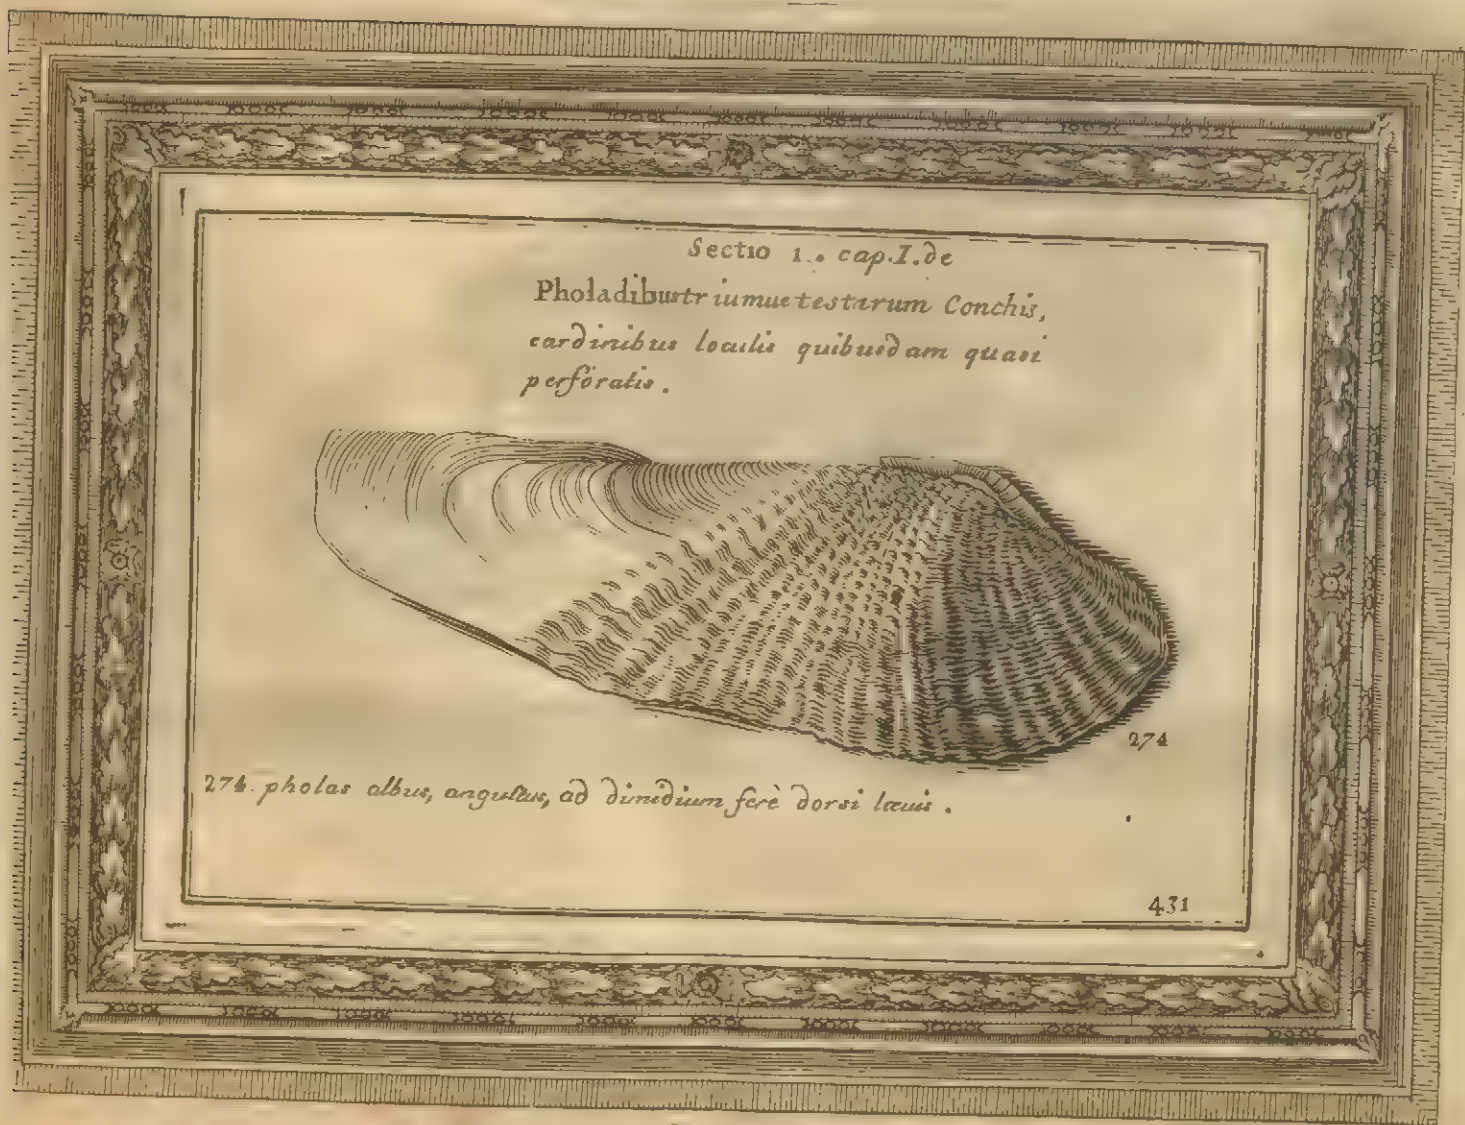 Sectio 1. cap. I. de
Pholadibus triumue testarum Conchis,
cardinibus loculis quibusdam quasi
perforatis.
274
274. pholas albus, angustus, ad dimidium ferè dorsi lævis.
431